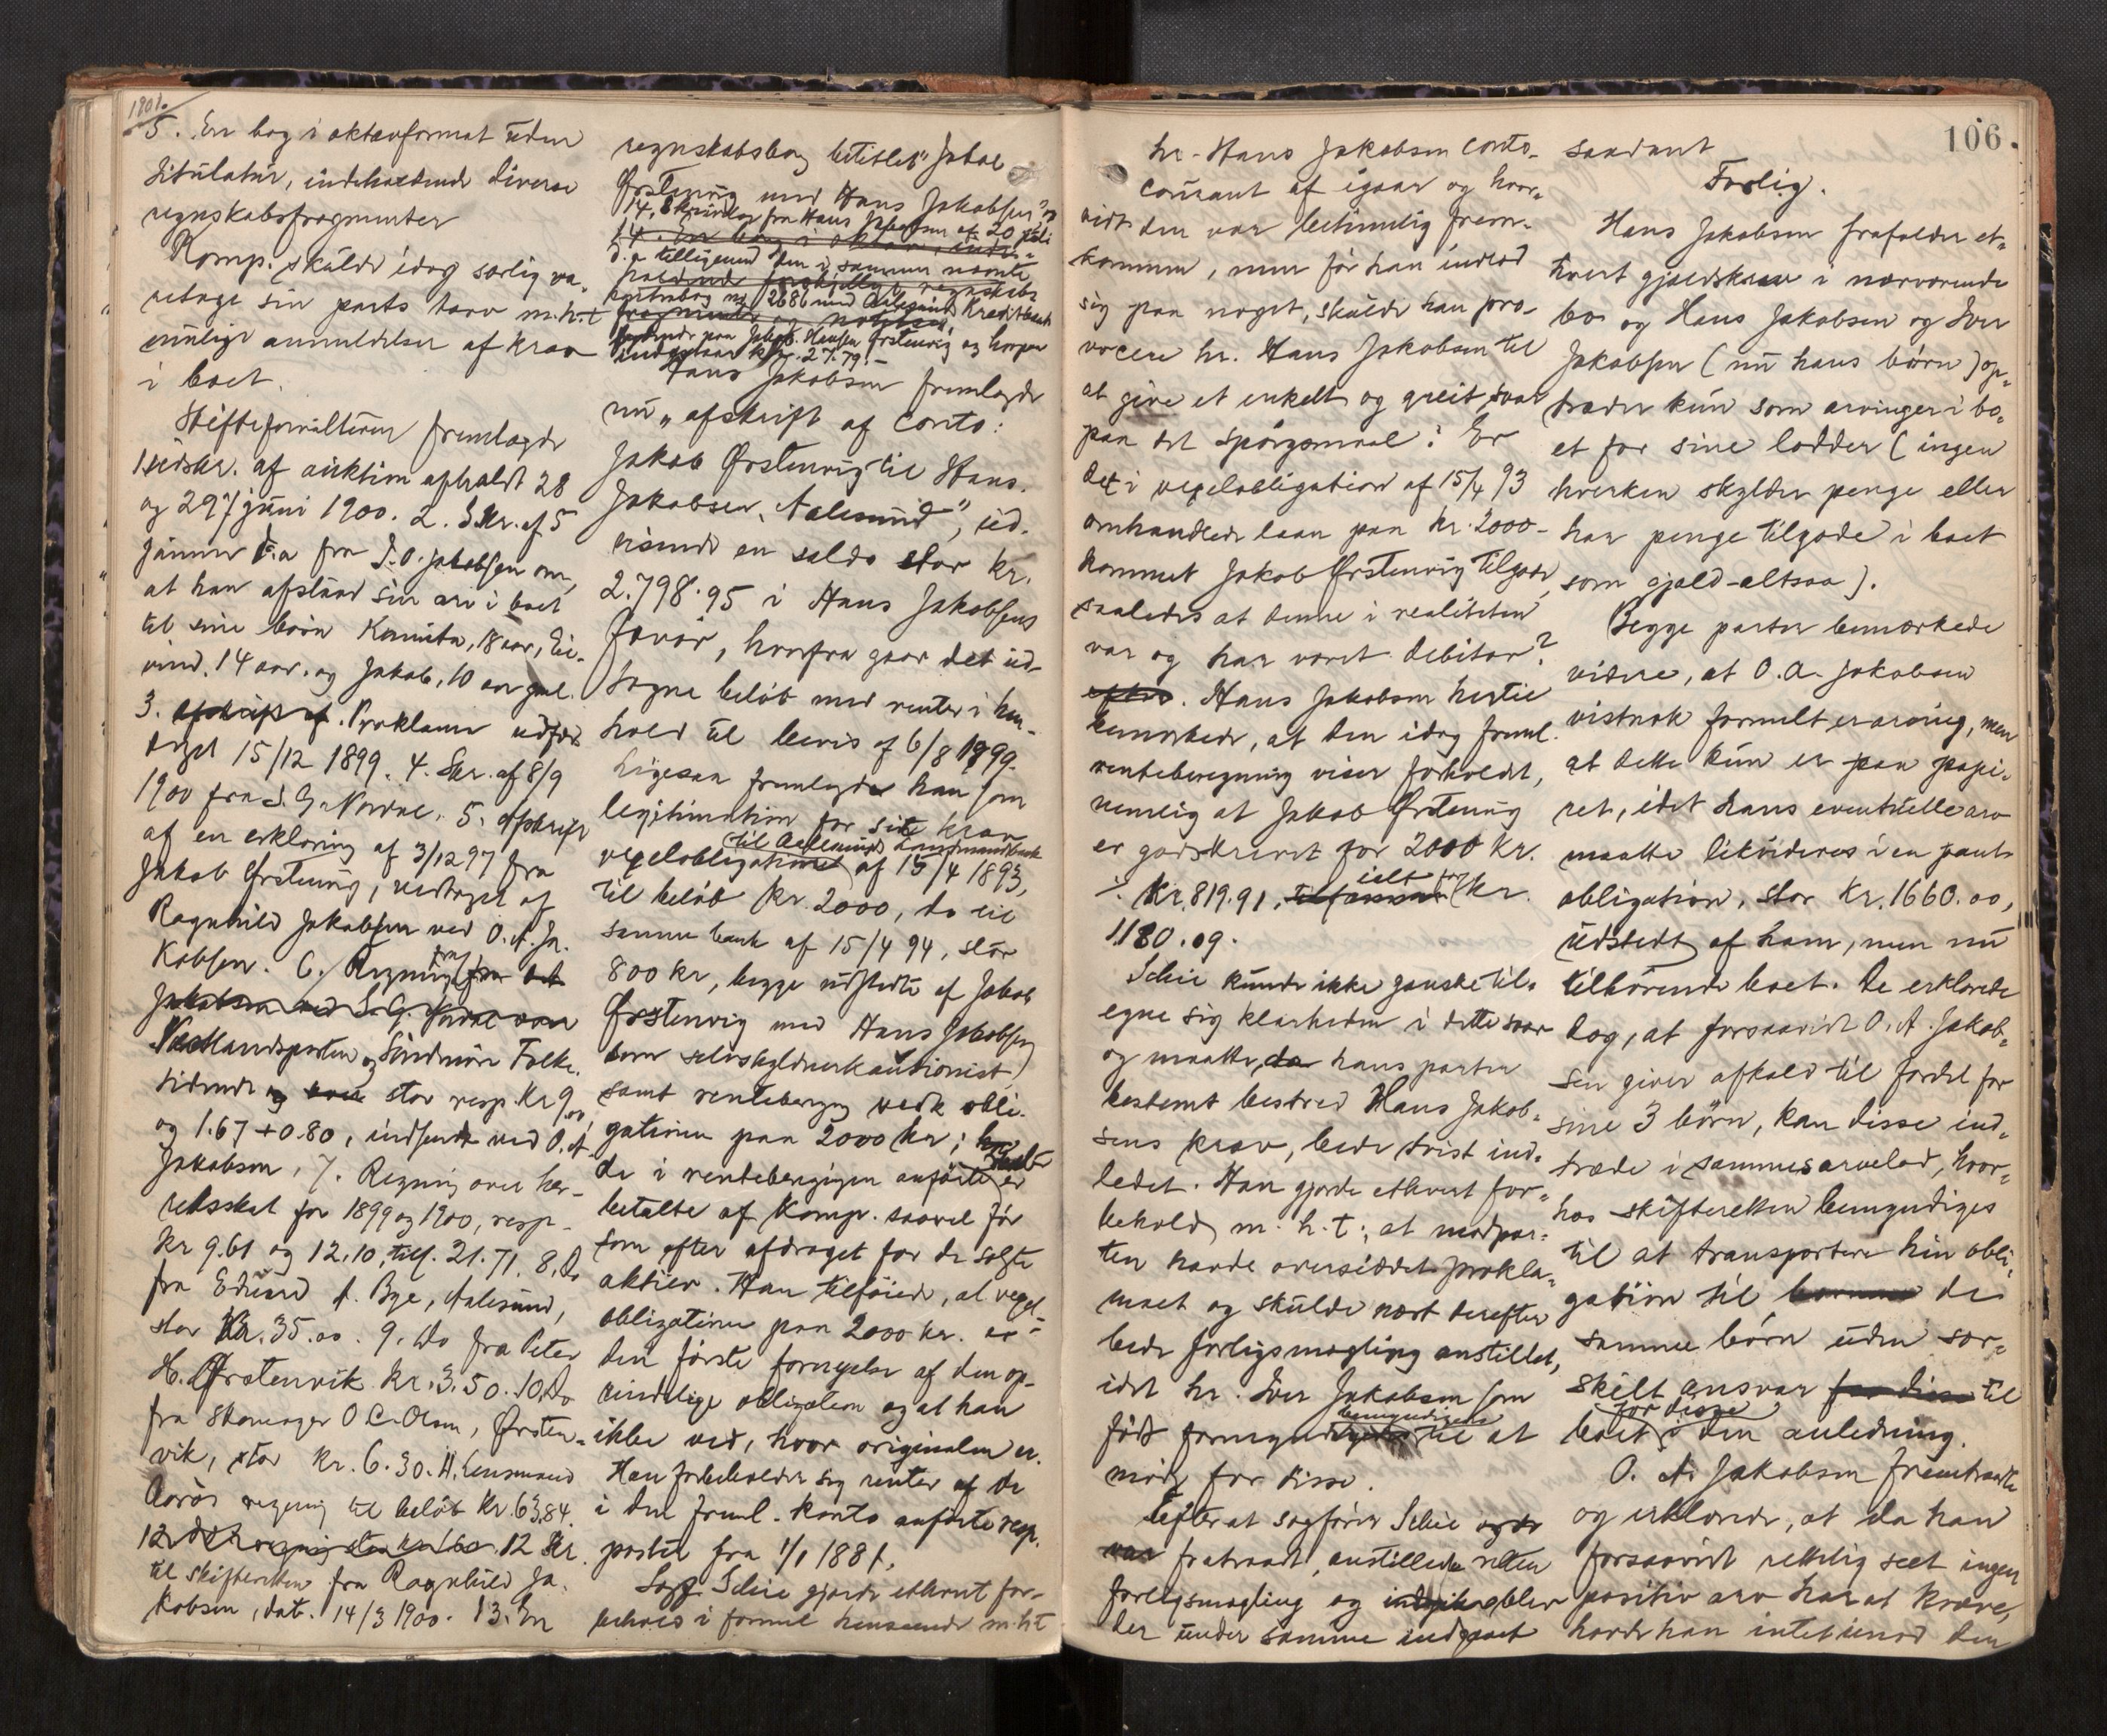 1901.
5. En bog i oktavformat uden
titulatur, indeholdende diverse
regnskabsfragmenter
Komp. skulde idag særlig va-
retage sin parts tarv m.h.t
mulige anmeldelser af krav
i boet.
Skifteforvalteren fremlagde
1 udskr. af auktion afholdt 28
og 29/ juni 1900. 2. Skr. af 5
januar d.a fra I. O. Jakobsen om,
at han afstaar sin arv i boet
til sine børn Kamita, 18 aar, Ei-
vind, 14 aar, og Jakob, 10 aar gml.
3. afskrift af. Proklama udfær-
diget 15/12 1899. 4. Skr. af 8/9
1900 fra S. G. Nordal. 5. Afskrift
af en erklæring af 3/12 97 fra
Jakob Ørstenvig, vedtaget af
Ragnhild Jakobsen ved O. A. Ja-
kobsen. 6. Regning fra
Jakobsen ved S. G. Nordal
Vestlandsposten og Søndmør Folke-
tidende og stor resp. Kr 9,00
og 1.67 + 0.80, indsendt ved O. A
Jakobsen, 7. Regning over her-
redsskat for 1899 og 1900, resp.
Kr 9.61 og 12.10, till. 21.71. 8. Do
fra Edvard A. Bye, Aalesund,
stor Kr. 35.00. 9. Do fra Peter
H. Ørstenvik Kr. 3.50. 10. Do
fra skomager O C. Olsen, Ørsten-
vik, stor Kr. 6.30. 11. Lensmand
Aarøs regning til beløb Kr. 63.84.
12 Skr.
til skifteretten fra Ragnhild Ja-
kobsen, dat. 14/3 1900. 13. En
regnskabsbog betitlet "Jakob
Ørstenvig med Hans Jakobsen" og
14. Skrivelse fra Hans Jakobsen af 20 juli
14. En bog i oktav, inde-
d. a tilligemed den i samme nævnte
holdende forskjellige regnskabs
kontrabog no 2686 med Aalesunds Kreditbank
fragmenter og notitser,
lydende paa Jakob Hansen Ørstenvig og hvorpaa
indestaar kr. 27.79.-
Hans Jakobsen fremlagde
nu "afskrift af Conto:
Jakob Ørstenvig til Hans
Jakobsen, Aalesund", ud-
visende en saldo stor kr.
2.798.95 i Hans Jakobsens
favør, hvorfra gaar det ud-
tagne beløb med renter i hen-
hold til bevis af 6/8 1899.
Ligesaa fremlagde han som
legitimation for sit krav
til Aalesunds Landmandsbank
vexelobligation af 15/4 1893,
til beløb Kr. 2000, do til
samme bank af 15/4 94, stor
800 kr, begge udstedte af Jakob
Ørstenvig med Hans Jakobsen
som selvskyldnerkautionist,
samt renteberegng vedk obli-
gationen paa 2000 kr;
de i renteberegningen anførte er
betalte af Komp. saavel før
som efter afdraget for de solgte
aktier. Han tilføiede, at vexel-
obligationen paa 2000 kr. er
den første fornyelse af den op-
rindelige obligation og at han
ikke ved, hvor originalen er.
Han forbeholder sig renter af de
i den freml. konto anførte resp.
poster fra 1/1 1881.
Sagf. Schie gjorde ethvert for-
behold i formel henseende m.h.t
106.
hr. Hans Jakobsen conto-
courant af igaar og hvor-
vidt den var betimelig frem-
kommen, men før han indlod
sig paa noget, skulde han pro-
vocere hr. Hans Jakobsen til
at give et enkelt og greit svar
paa det spørgsmaal: Er
det i vexelobligation af 15/4 93
omhandlede laan paa kr. 2000-
kommet Jakob Ørstenvig tilgode,
saaledes at denne i realiteten
var og har været debitor?
Hans Jakobsen hertil
bemærkede, at den idag freml.
renteberegning viser forholdet,
nemlig at Jakob Ørstenvig
er godskrevet for 2000 kr.
÷ Kr. 819.91, ialt for kr.
1180.09.
Schie kunde ikke ganske til-
egne sig klarheden i dette svar
og maatte, da hans parter
bestemt bestred Hans Jakob-
sens krav, bede tvist ind-
ledet. Han gjorde ethvert for-
behold m. h. t., at modpar-
ten havde oversiddet prokla-
maet og skulde næst derefter
bede forligsmægling anstillet,
idet hr. Iver Jakobsen som
bemyndigens
født formynder til at
møde for disse.
Efter at sagfører Schie
var fratraadt, anstillede retten
forligsmægling og blev
der under samme indgaaet
saadant
Forlig.
Hans Jakobsen frafalder et-
hvert gjældskrav i nærværende
bo og Hans Jakobsen og Iver
Jakobsen (nu hans børn) op-
træder kun som arvinger i bo-
et for sine lodder (ingen
hverken skylder penge eller
har penge tilgode i boet
som gjæld-altsaa).
Begge parter bemærkede
videre, at O. A. Jakobsen
vistnok formelt er arving, men
at dette kun er paa papi-
ret, idet hans eventuelle arv
maatte likvideres i en pant-
obligation, stor Kr. 1660.00,
udstedt af ham, men nu
tilhørende boet. De erklærede
dog, at forsaavidt O. A. Jakob-
sen giver afkald til fordel for
sine 3 børn, kan disse ind-
træde i sammes arvelod, hvor-
hos skifteretten bemyndiges
til at transportere hin obli-
gation til børnene de
samme børn uden sær-
skilt ansvar for disse til
for disse
boet i den anledning.
O. A. Jakobsen fremtraadte
og erklærede, at da han
forsaavidt rettelig seet ingen
positiv arv har at kræve,
havde han intet imod den